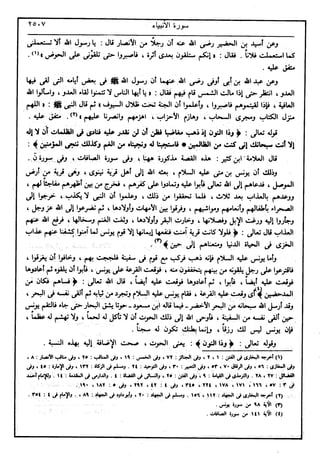 سورة الأنبياء
٢٥٠٧
وعن أسيد بن الحضير رضى الله عنه أن رجلاً من الأنصار قال : يا رسول الله ألا تستعملنى
كما استعملت فلاناً . فقال : « إنكم ستلقون بعدى أثرة ، فاصبروا حتى تلقونى على الحوض » (١) .
متفق عليه .
وعن عبد الله بن أبى أوفى رضى الله عنهما أن رسول الله ﷺ فى بعض أيامه التى لقى فيها
العدو ، انتظر حتى إذا مالت الشمس قام فيهم فقال : « يا أيها الناس لا تتمنوا لقاء العدو ، واسألوا الله
العافية ، فإذا لقيتموهم فاصبروا ، واعلموا أن الجنة تحت ظلال السيوف » ثم قال النبى ﷺ : « اللهم
منزل الكتاب ومجرى السحاب ، وهازم الأحزاب ، اهزمهم وانصرنا عليهم » (٢) . متفق عليه .
قوله تعالى : ﴿ وذا النون إذ ذهب مغاضبا فظن أن لن نقدر عليه فنادى فى الظلمات أن لا إله
إلا أنت سبحانك إنى كنت من الظالمين ۞ فاستجبنا له ونجيناه من الغم وكذلك ننجى المؤمنين ﴾ :
قال العلامة ابن كثير : هذه القصة مذكورة ههنا ، وفى سورة الصافات ، وفى سورة ن .
وذلك أن يونس بن متى عليه السلام ، بعثه الله إلى أهل قرية نينوى ، وهى قرية من أرض
الموصل ، فدعاهم إلى الله تعالى فأبوا عليه وتمادوا على كفرهم ، فخرج من بين أظهرهم مغاضباً لهم ،
ووعدهم بالعذاب بعد ثلاث ، فلما تحققوا من ذلك ، وعلموا أن النبى لا يكذب ، خرجوا إلى
الصحراء بأطفالهم وأنعامهم ومواشيهم ، وفرقوا بين الأمهات وأولادها ، ثم تضرعوا إلى الله عز وجل ،
وجأروا إليه ورغت الإبل وفصلانها ، وخارت البقر وأولادها ، وثغت الغنم وسخالها ، فرفع الله عنهم
العذاب قال تعالى : ﴿ فلولا كانت قرية آمنت فنفعها إيمانها إلا قوم يونس لما آمنوا كشفنا عنهم عذاب
الخزى فى الحياة الدنيا ومتعناهم إلى حين ﴾ (٣) .
وأما يونس عليه السلام فإنه ذهب فركب مع قوم فى سفينة فلججت بهم ، وخافوا أن يغرقوا ،
فاقترعوا على رجل يلقونه من بينهم يتخففون منه ، فوقعت القرعة على يونس ، فأبوا أن يلقوه ثم أعادوها
فوقعت عليه أيضاً ، فأبوا ، ثم أعادوها فوقعت عليه أيضاً ، قال الله تعالى : ﴿ فساهم فكان من
المدحضين ﴾ (٤) أى وقعت عليه القرعة ، فقام يونس عليه السلام وتجرد من ثيابه ثم ألقى نفسه فى البحر ،
وقد أرسل الله سبحانه من البحر الأخضر - فيما قاله ابن مسعود - حوتاً يشق البحار حتى جاء فالتقم يونس
حين ألقى نفسه من السفينة ، فأوحى الله إلى ذلك الحوت أن لا تأكل له لحماً ، ولا تهشم له عظماً ،
فإن يونس ليس لك رزقاً ، وإنما بطنك تكون له سجناً .
وقوله تعالى : ﴿ وذا النون ﴾ : يعنى الحوت ، صحت الإضافة إليه بهذه النسبة .